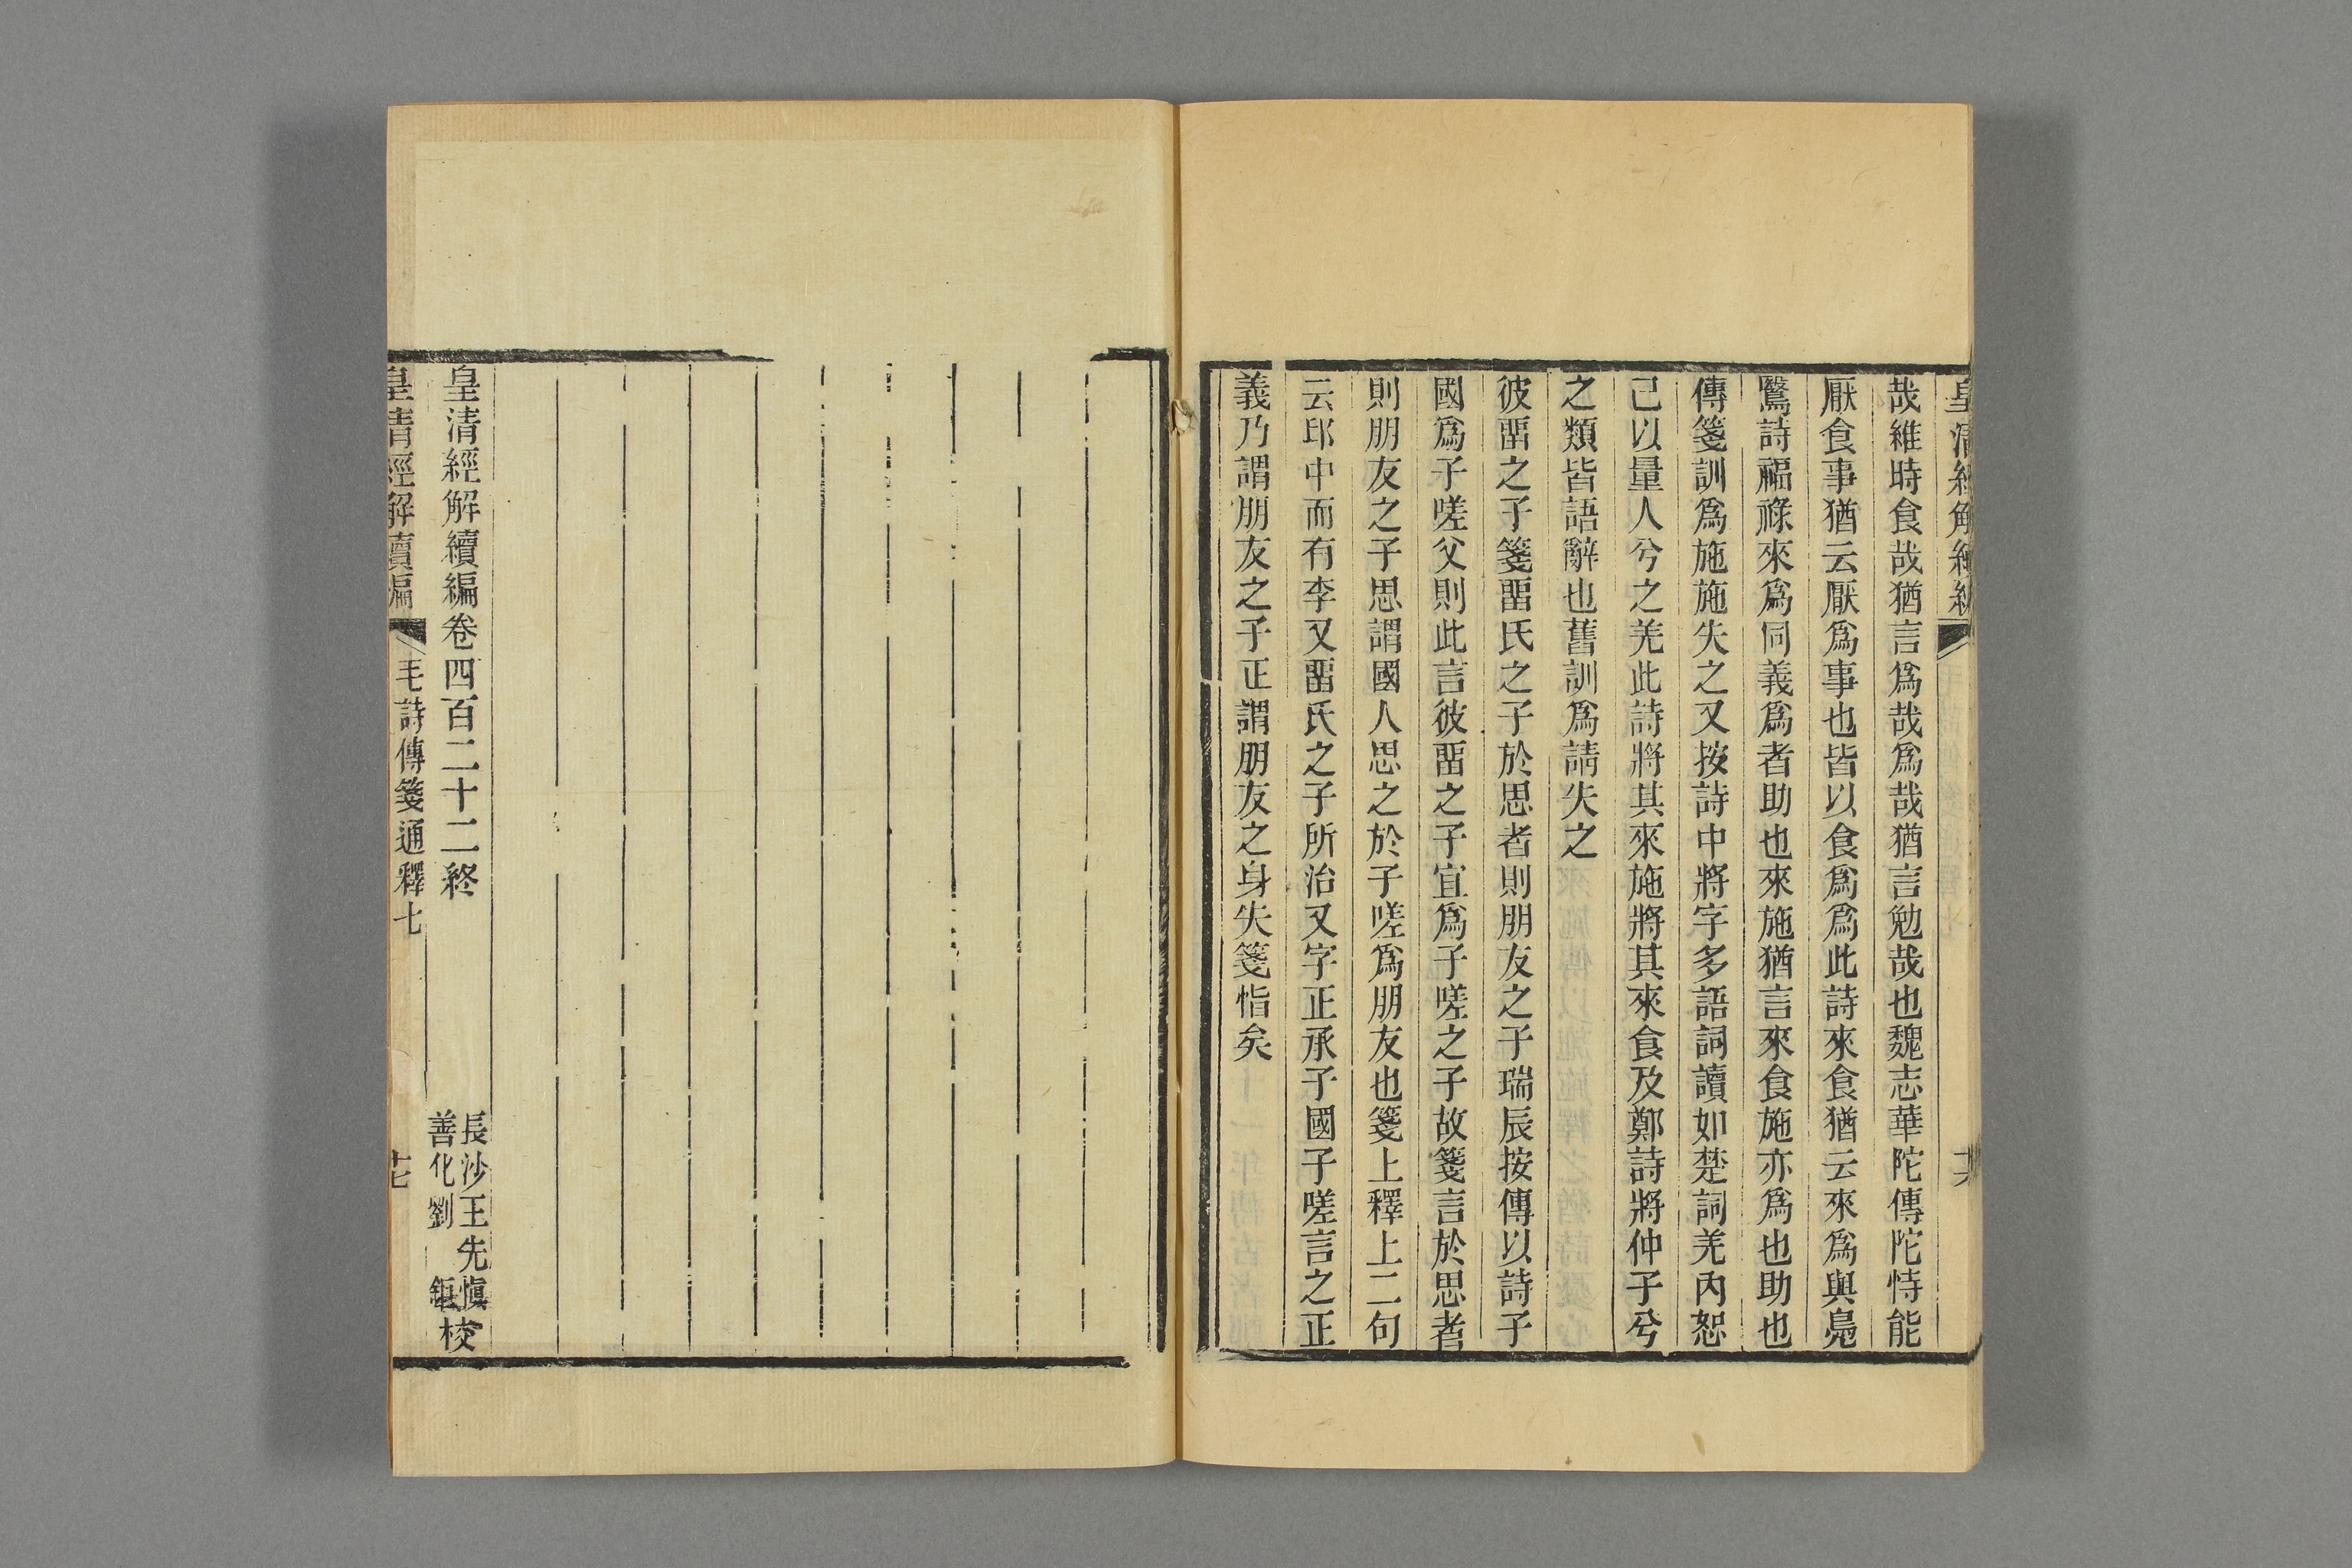 皇清經解續編
十六
哉維時食哉猶言爲哉爲哉猶言勉哉也魏志華陀傳陀恃能
厭食事猶云厭爲事也皆以食爲爲此詩來食猶云來爲與鳧
鷖詩福祿來爲同義爲者助也來施猶言來食施亦爲也助也
傳箋訓爲施施失之又按詩中將字多語詞讀如楚詞羌內恕
己以量人兮之羌此詩將其來施將其來食及鄭詩將仲子兮
之類皆語辭也舊訓爲請失之
彼畱之子箋畱氏之子於思者則朋友之子瑞辰按傳以詩子
國爲子嗟父則此言彼畱之子宜爲子嗟之子故箋言於思者
則朋友之子思謂國人思之於子嗟爲朋友也箋上釋上二句
云邱中而有李又畱氏之子所治又字正承子國子嗟言之正
義乃謂朋友之子正謂朋友之身失箋恉矣
皇清經解續編卷四百二十二終
長沙王先慎
善化劉鉅校
皇清經解續編
毛詩傳箋通釋七
十七